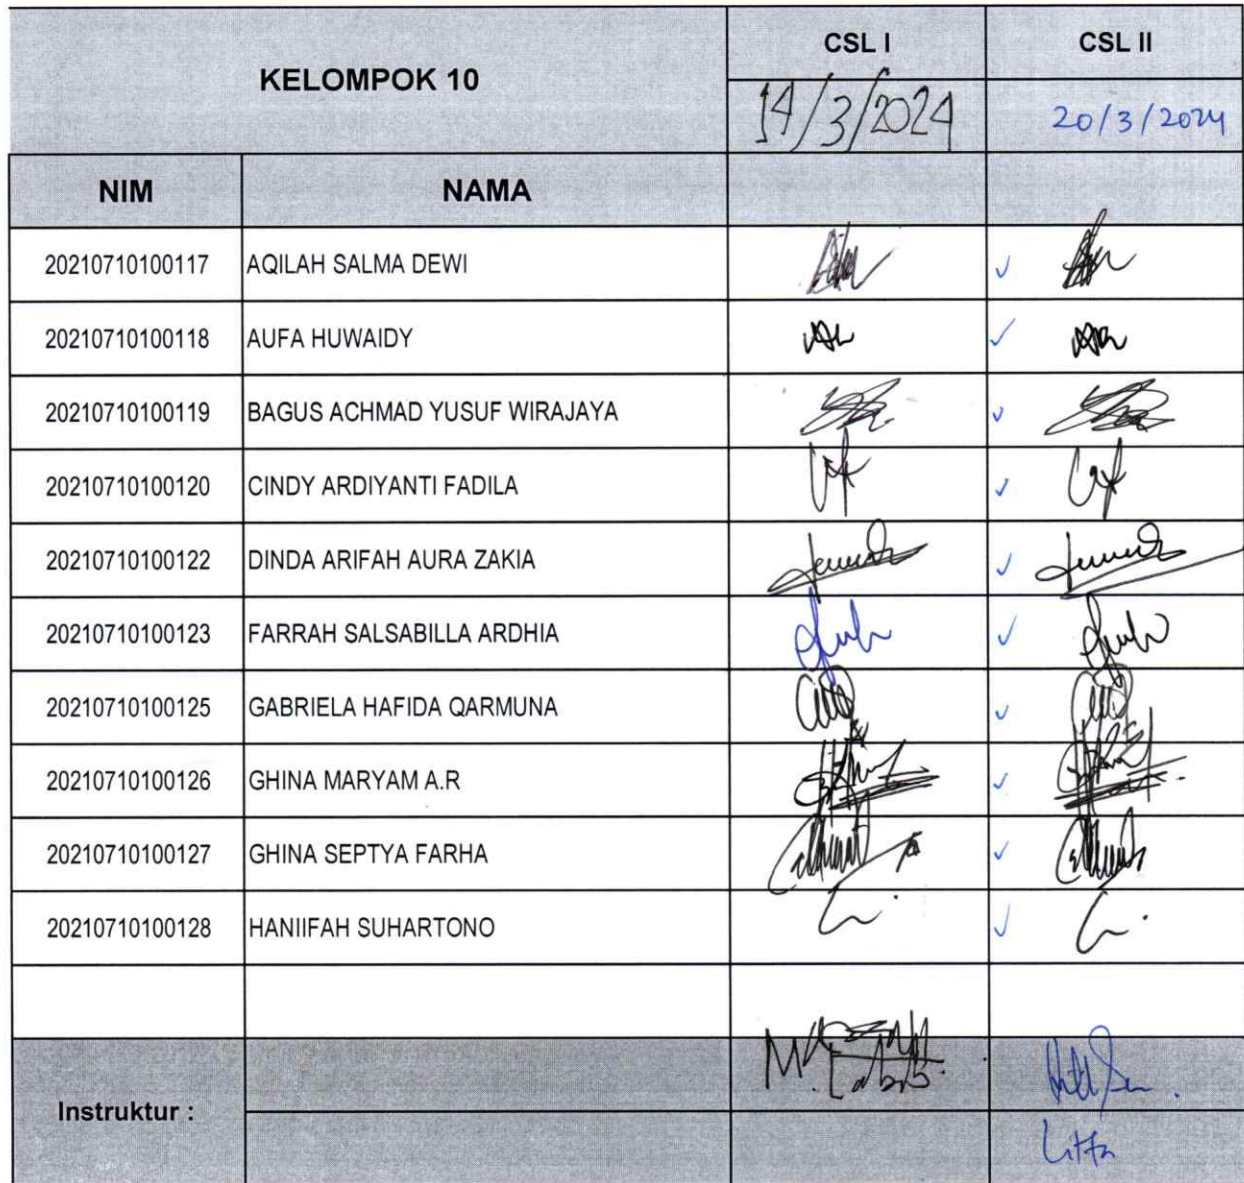 KELOMPOK 10
CSL I
CSL II
14/3/2024
20/3/2024
NIM
NAMA
20210710100117 AQILAH SALMA DEWI
20210710100118 AUFA HUWAIDY
20210710100119 BAGUS ACHMAD YUSUF WIRAJAYA
20210710100120 CINDY ARDIYANTI FADILA
20210710100122 DINDA ARIFAH AURA ZAKIA
20210710100123 FARRAH SALSABILLA ARDHIA
20210710100125 GABRIELA HAFIDA QARMUNA
20210710100126 GHINA MARYAM A.R
20210710100127 GHINA SEPTYA FARHA
20210710100128 HANIIFAH SUHARTONO
Instruktur :